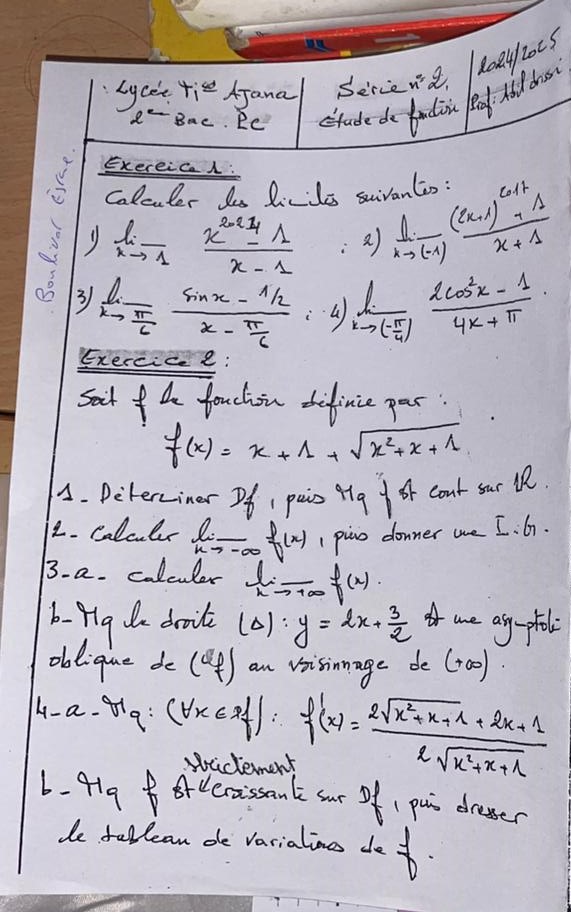 Lycée Tisa Ajana
2ème Bac. PC
Série n° 2.
étude de fonction
2024/2025
Prof:
Exercice 1:
Calculer les limites suivantes:
1) lim x→1 (x^2024 - 1)/(x - 1) ; 2) lim x→(-1) ((2x+1)^2017 + 1)/(x + 1)
3) lim x→π/6 (sinx - 1/2)/(x - π/6) ; 4) lim x→(-π/4) (2cos²x - 1)/(4x + π).
Exercice 2:
Soit f la fonction définie par:
f(x) = x + 1 + √(x² + x + 1).
1- Déterminer Df, puis Mq f est cont sur IR.
2- Calculer lim x→-∞ f(x), puis donner une I.G.
3-a- calculer lim x→+∞ f(x).
b- Mq la droite (Δ): y = 2x + 3/2 est une asymptote
oblique de (Cf) au voisinnage de (+∞).
4-a- Mq: (∀x∈Df): f'(x) = (2√(x²+x+1) + 2x + 1)/(2√(x²+x+1))
b- Mq f est strictement croissante sur Df, puis dresser
le tableau de variations de f.